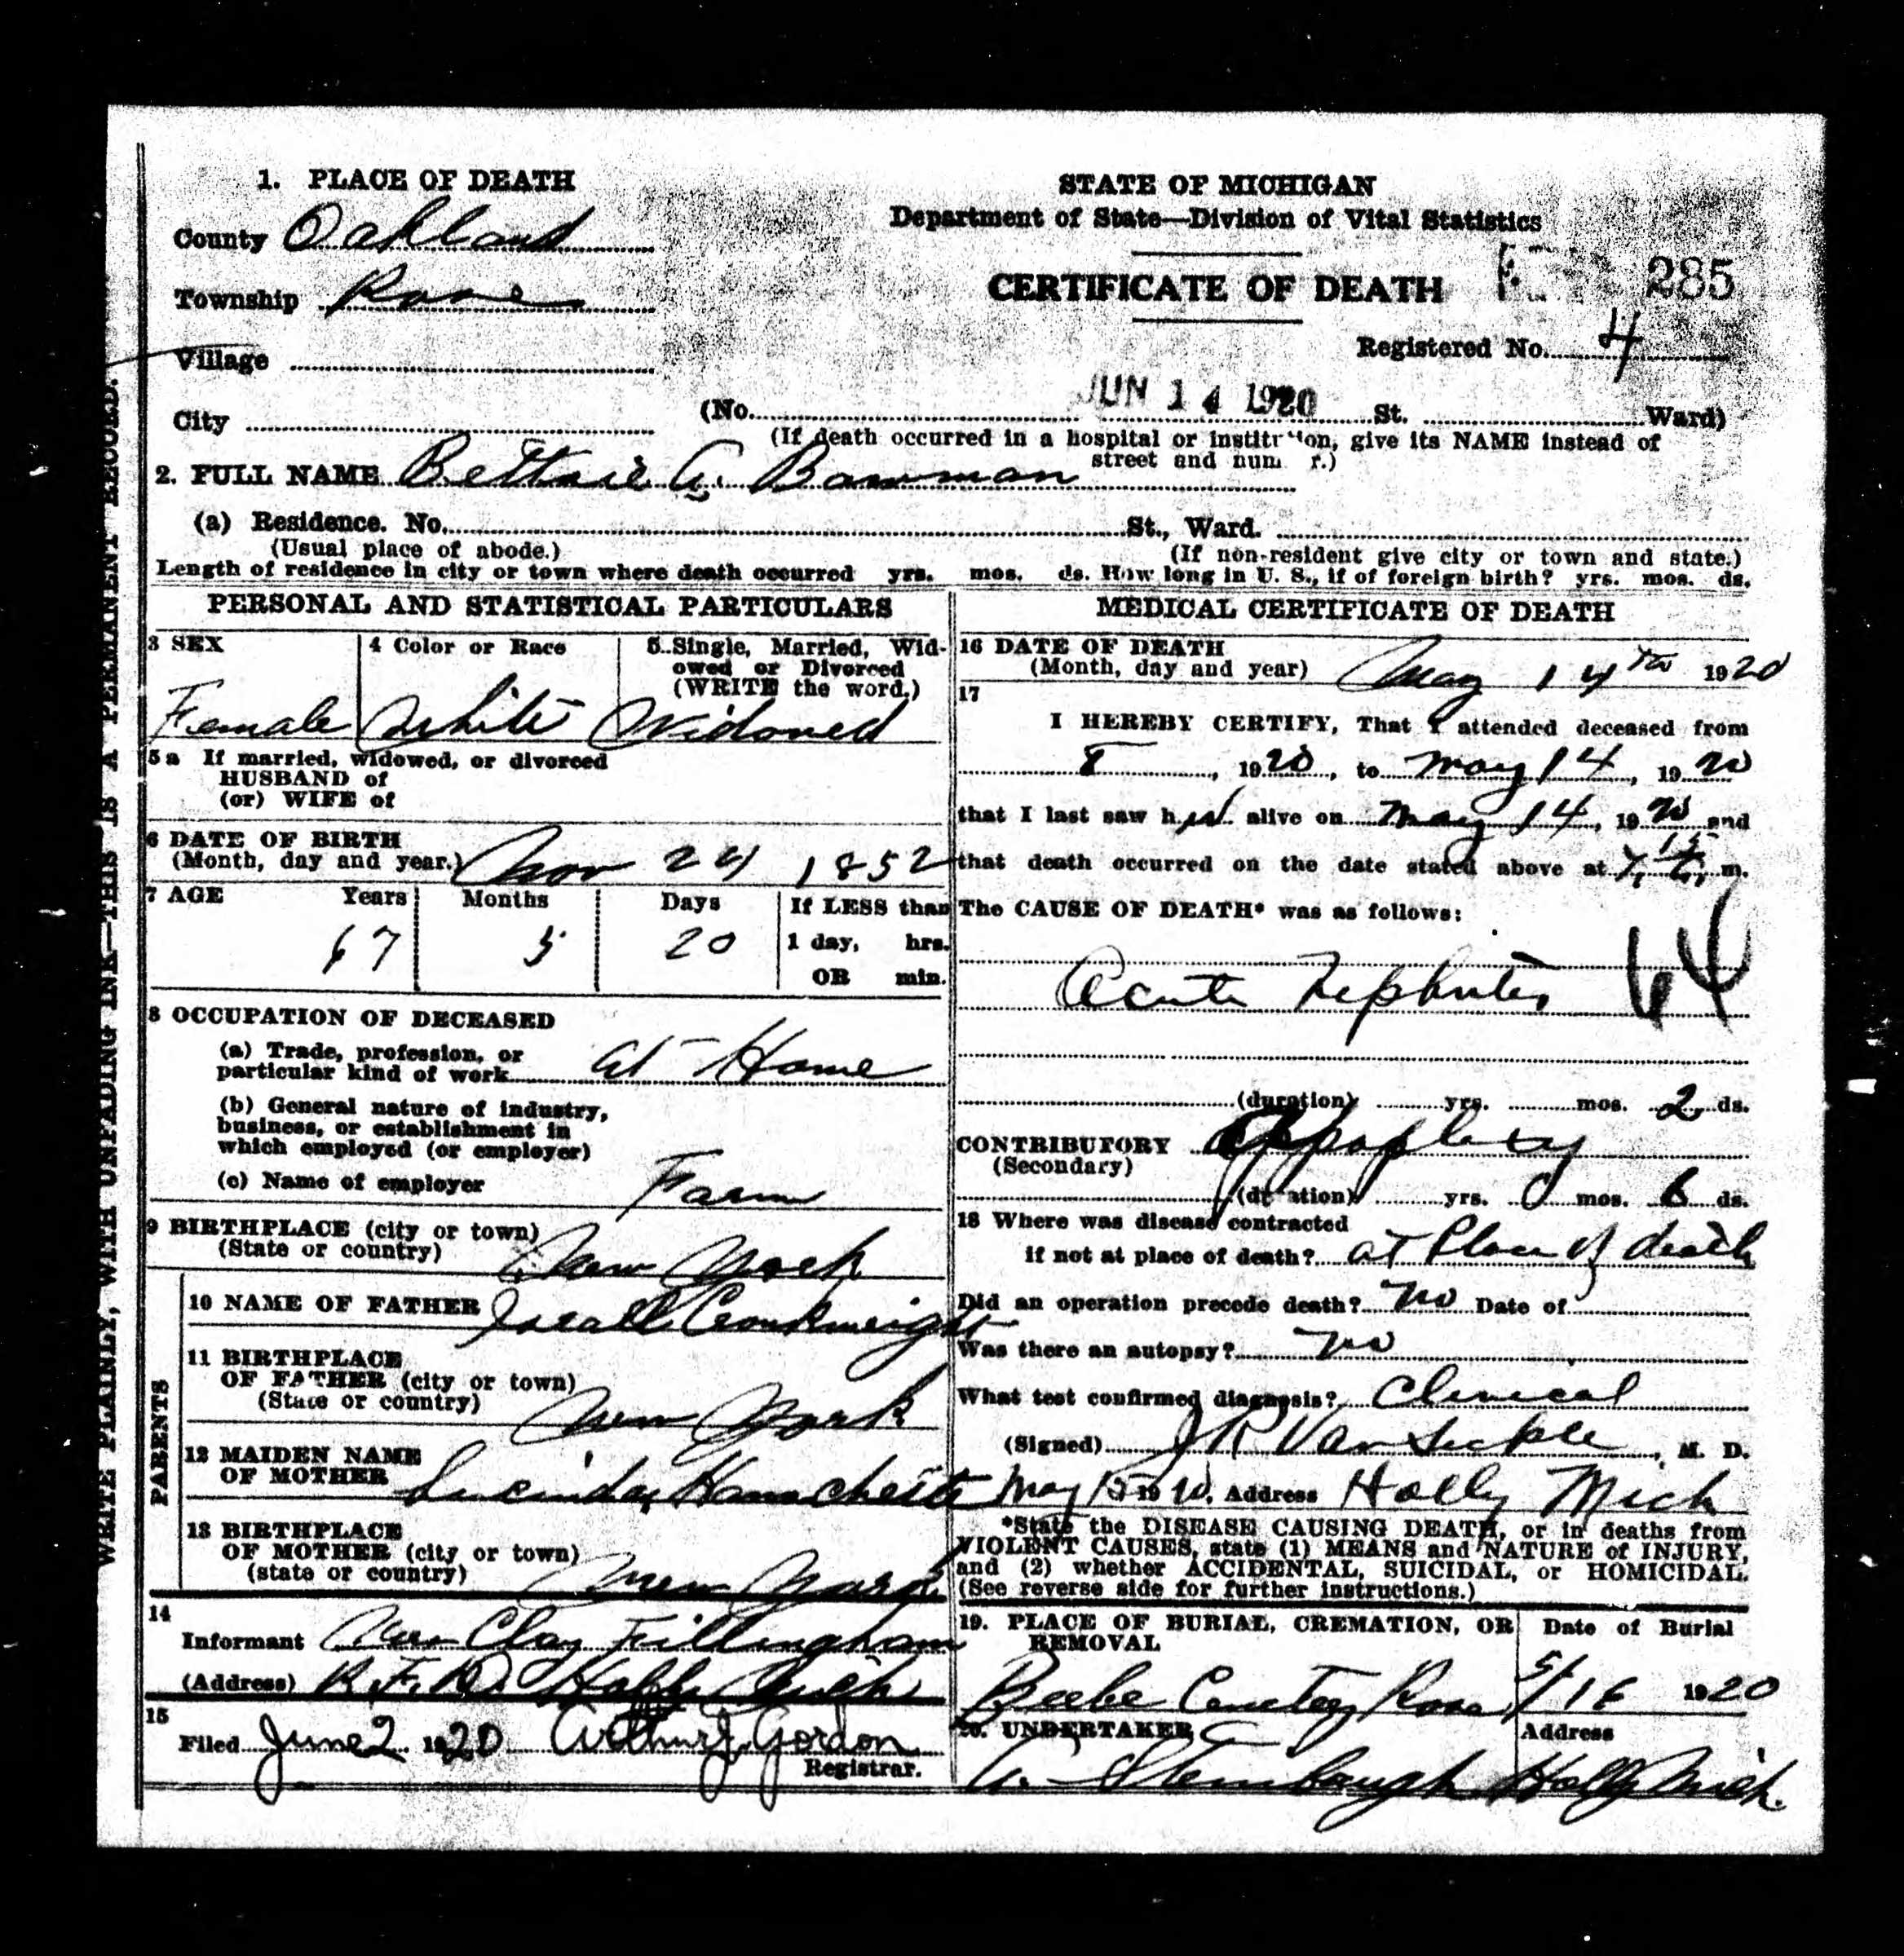 1. PLACE OF DEATH
County Oakland
Township Rose
Village
City
STATE OF MICHIGAN
Department of State—Division of Vital Statistics
CERTIFICATE OF DEATH
285
Registered No. 4
JUN 14 1920
(No. St. Ward)
(If death occurred in a hospital or institution, give its NAME instead of
street and number.)
2. FULL NAME A. Bowman
(a) Residence. No. St., Ward.
(Usual place of abode.)
(If non-resident give city or town and state.)
Length of residence in city or town where death occurred yrs. mos. ds. How long in U. S., if of foreign birth? yrs. mos. ds.
PERSONAL AND STATISTICAL PARTICULARS
3 SEX
4 Color or Race
5. Single, Married, Wid-
owed or Divorced
(WRITE the word.)
Female White Widowed
5a If married, widowed, or divorced
HUSBAND of
(or) WIFE of
6 DATE OF BIRTH
(Month, day and year.) Nov 24 1852
7 AGE Years Months Days If LESS than
67 5 20 1 day, hrs.
OR min.
8 OCCUPATION OF DECEASED
(a) Trade, profession, or
particular kind of work at Home
(b) General nature of industry,
business, or establishment in
which employed (or employer)
(c) Name of employer Farm
9 BIRTHPLACE (city or town)
(State or country) New York
PARENTS
10 NAME OF FATHER
11 BIRTHPLACE
OF FATHER (city or town)
(State or country) New York
12 MAIDEN NAME
OF MOTHER Lucinda
13 BIRTHPLACE
OF MOTHER (city or town)
(state or country) New York
14
Informant Mrs Clay Fillingham
(Address) R.F.D. Holly Mich
15
Filed June 2 1920 Arthur J. Gordon
Registrar.
MEDICAL CERTIFICATE OF DEATH
16 DATE OF DEATH
(Month, day and year) May 14th 1920
17
I HEREBY CERTIFY, That I attended deceased from
8, 1920, to May 14, 1920
that I last saw her alive on May 14, 1920 and
that death occurred on the date stated above at m.
The CAUSE OF DEATH* was as follows:
64
Acute Nephritis
(duration) yrs. mos. 2 ds.
CONTRIBUTORY Appoplexy
(Secondary)
(duration) yrs. 0 mos. 6 ds.
18 Where was disease contracted
if not at place of death? at Place of death
Did an operation precede death? no Date of
Was there an autopsy? no
What test confirmed diagnosis? Clinical
(Signed) J R Van Sickle, M. D.
May 15 1920. Address Holly Mich
*State the DISEASE CAUSING DEATH, or in deaths from
VIOLENT CAUSES, state (1) MEANS and NATURE of INJURY,
and (2) whether ACCIDENTAL, SUICIDAL, or HOMICIDAL.
(See reverse side for further instructions.)
19. PLACE OF BURIAL, CREMATION, OR
REMOVAL
Date of Burial
Beebe Cemetery Rose 5/16 1920
20. UNDERTAKER
Address
Holly Mich.
WRITE PLAINLY, WITH UNFADING INK—THIS IS A PERMANENT RECORD.